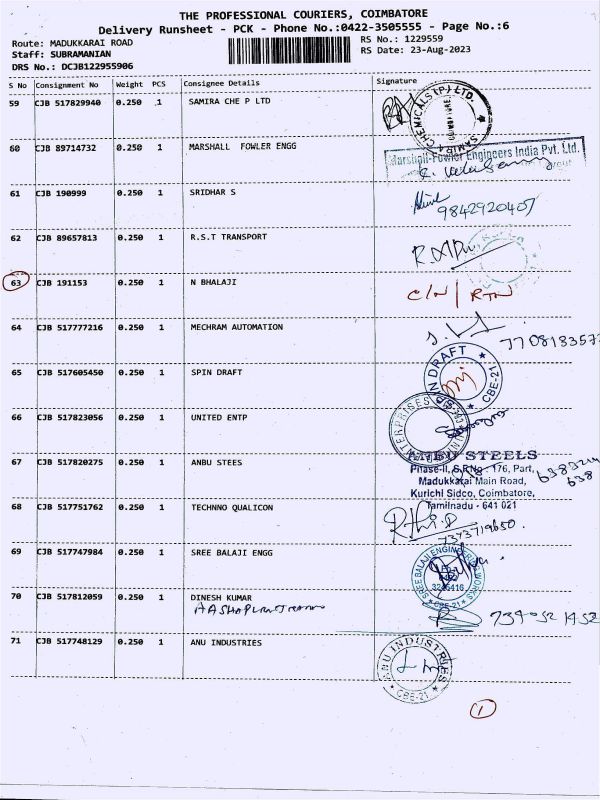 THE PROFESSIONAL COURIERS, COIMBATORE
Delivery Runsheet - PCK - Phone No.:0422-3505555 - Page No.:6
Route: MADUKKARAI ROAD
RS No.: 1229559
Staff: SUBRAMANIAN
RS Date: 23-Aug-2023
DRS No.: DCJB122955906
S No Consignment No Weight PCS Consignee Details Signature
59 CJB 517829940 0.250 1 SAMIRA CHE P LTD
SAMIRA CHEMICALS (P) LTD. COIMBATORE
60 CJB 89714732 0.250 1 MARSHALL FOWLER ENGG
Marshall-Fowler Engineers India Pvt. Ltd.
61 CJB 190999 0.250 1 SRIDHAR S
9842920407
62 CJB 89657813 0.250 1 R.S.T TRANSPORT
63 CJB 191153 0.250 1 N BHALAJI
C/N / RTN
64 CJB 517777216 0.250 1 MECHRAM AUTOMATION
65 CJB 517605450 0.250 1 SPIN DRAFT
SPIN DRAFT CBE-21
66 CJB 517823056 0.250 1 UNITED ENTP
ENTERPRISES
67 CJB 517820275 0.250 1 ANBU STEES
ANBU STEELS
Phase-II, S.F.No. 176, Part,
Madukkarai Main Road,
Kurichi Sidco, Coimbatore,
Tamilnadu - 641 021
68 CJB 517751762 0.250 1 TECHNNO QUALICON
7373719650
69 CJB 517747984 0.250 1 SREE BALAJI ENGG
SREE BALAJI ENGINEERING WORKS CBE-21
70 CJB 517812059 0.250 1 DINESH KUMAR
71 CJB 517748129 0.250 1 ANU INDUSTRIES
ANU INDUSTRIES CBE-21
1